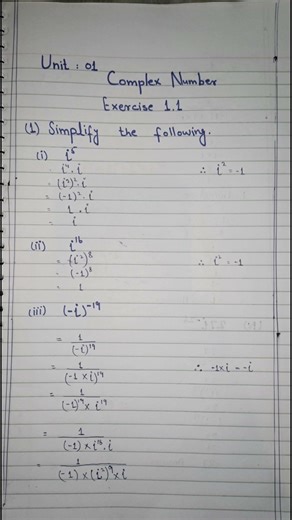 Unit : 01
Complex Number
Exercise 1.1
(1) Simplify the following.
(i) i⁵
= i⁴ . i ∴ i² = -1
= (i²)² . i
= (-1)² . i
= 1 . i
= i
(ii) i¹⁶
= (i²)⁸ ∴ i² = -1
= (-1)⁸
= 1
(iii) (-i)⁻¹⁹
= 1/(-i)¹⁹
= 1/(-1 × i)¹⁹ ∴ -1×i = -i
= 1/(-1)¹⁹ × i¹⁹
= 1/(-1) × i¹⁸ . i
= 1/(-1) × (i²)⁹ × i